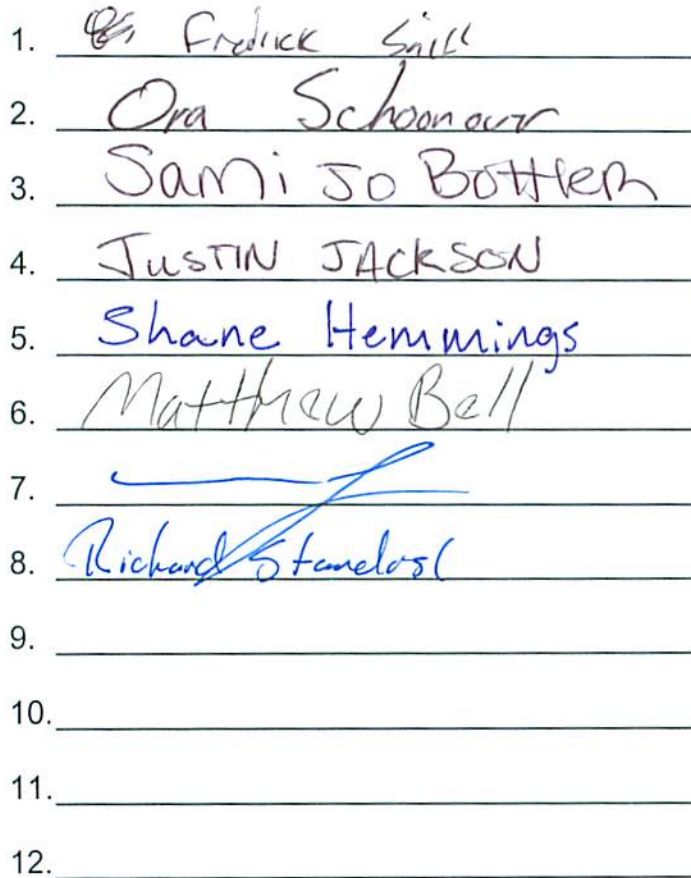 1. Fredrick
2. Ora Schoonover
3. Sami Jo Bottlem
4. JUSTIN JACKSON
5. Shane Hemmings
6. Matthew Bell
7.
8. Richard
9.
10.
11.
12.